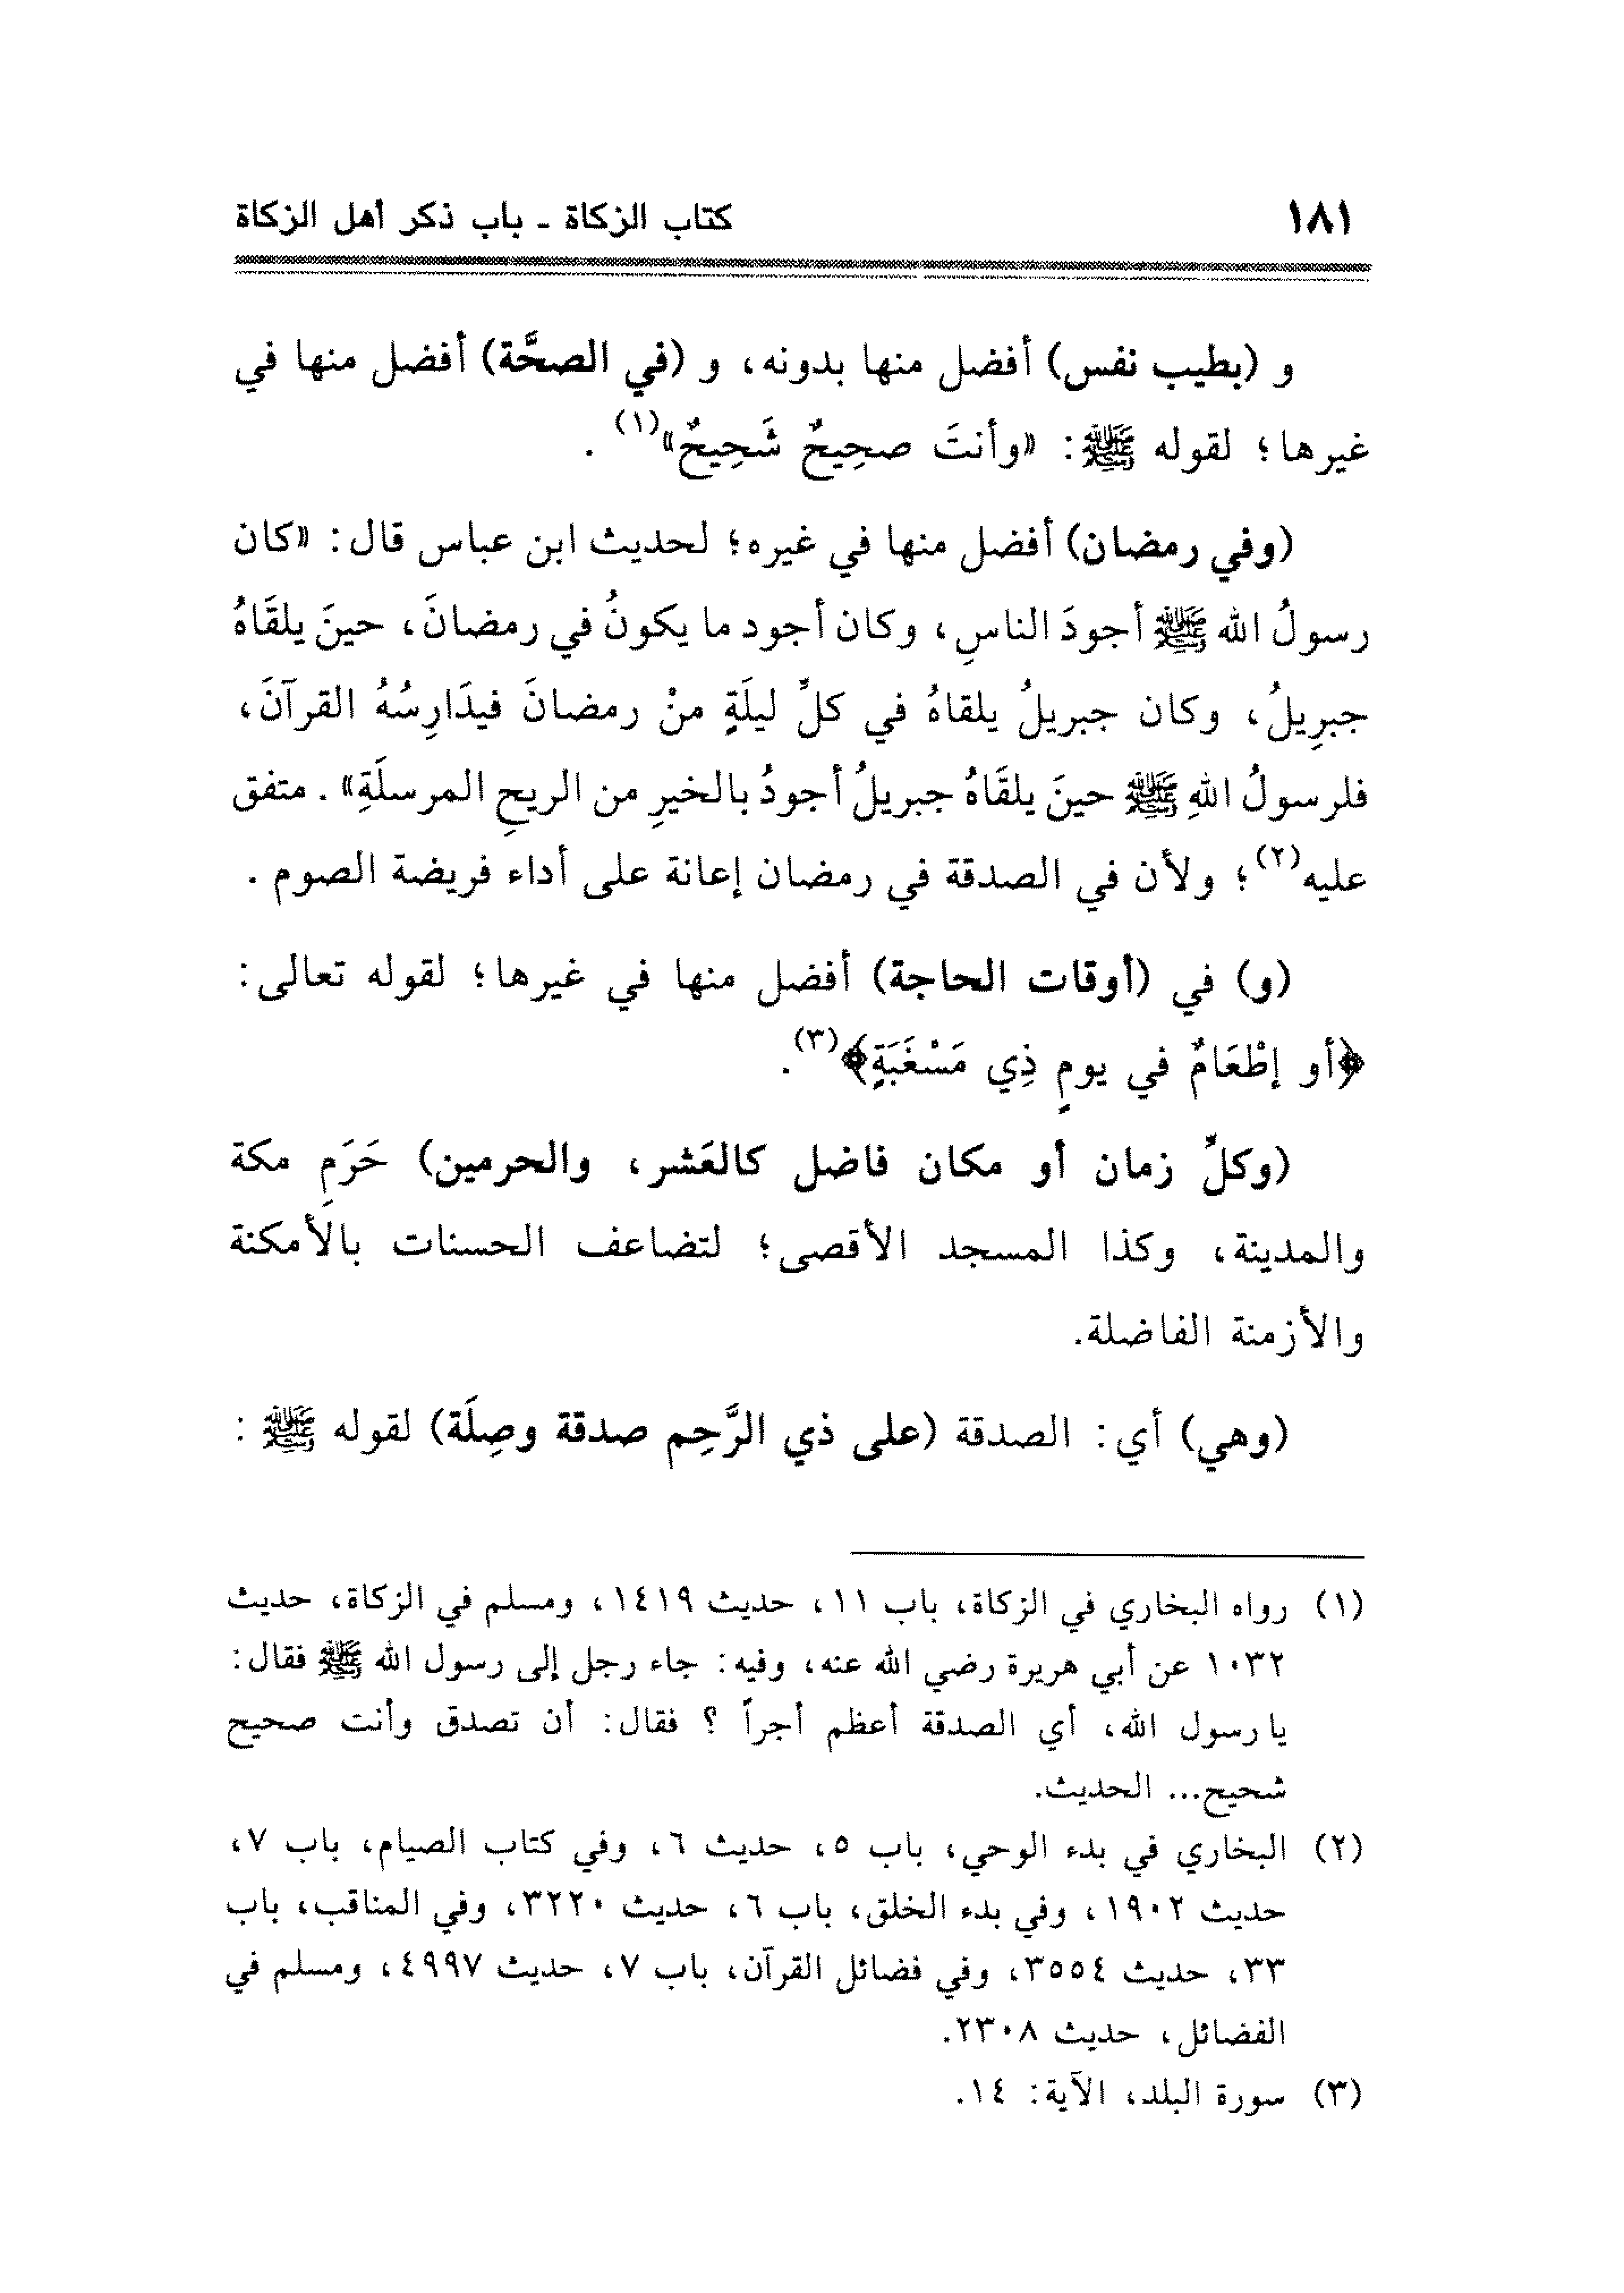 ١٨١ كتاب الزكاة ـ باب ذكر أهل الزكاة
و (بطيب نفس) أفضل منها بدونه، و (في الصحَّة) أفضل منها في
غيرها؛ لقوله ﷺ: «وأنتَ صحِيحٌ شَحِيحٌ»(١) .
(وفي رمضان) أفضل منها في غيره؛ لحديث ابن عباس قال: «كان
رسولُ الله ﷺ أجودَ الناسِ، وكان أجود ما يكونُ في رمضانَ، حينَ يلقَاهُ
جبرِيلُ، وكان جبريلُ يلقاهُ في كلِّ ليلَةٍ منْ رمضانَ فيدَارِسُهُ القرآنَ،
فلرسولُ اللهِ ﷺ حينَ يلقَاهُ جبريلُ أجودُ بالخيرِ من الريحِ المرسلَةِ». متفق
عليه(٢)؛ ولأن في الصدقة في رمضان إعانة على أداء فريضة الصوم .
(و) في (أوقات الحاجة) أفضل منها في غيرها؛ لقوله تعالى:
﴿أو إطْعَامٌ في يومٍ ذِي مَسْغَبَةٍ﴾(٣).
(وكلِّ زمان أو مكان فاضل كالعَشر، والحرمين) حَرَمِ مكة
والمدينة، وكذا المسجد الأقصى؛ لتضاعف الحسنات بالأمكنة
والأزمنة الفاضلة.
(وهي) أي: الصدقة (على ذي الرَّحِم صدقة وصِلَة) لقوله ﷺ :
(١) رواه البخاري في الزكاة، باب ١١، حديث ١٤١٩، ومسلم في الزكاة، حديث
١٠٣٢ عن أبي هريرة رضي الله عنه، وفيه: جاء رجل إلى رسول الله ﷺ فقال:
يا رسول الله، أي الصدقة أعظم أجراً ؟ فقال: أن تصدق وأنت صحيح
شحيح... الحديث.
(٢) البخاري في بدء الوحي، باب ٥، حديث ٦، وفي كتاب الصيام، باب ٧،
حديث ١٩٠٢، وفي بدء الخلق، باب ٦، حديث ٣٢٢٠، وفي المناقب، باب
٣٣، حديث ٣٥٥٤، وفي فضائل القرآن، باب ٧، حديث ٤٩٩٧، ومسلم في
الفضائل، حديث ٢٣٠٨.
(٣) سورة البلد، الآية: ١٤.